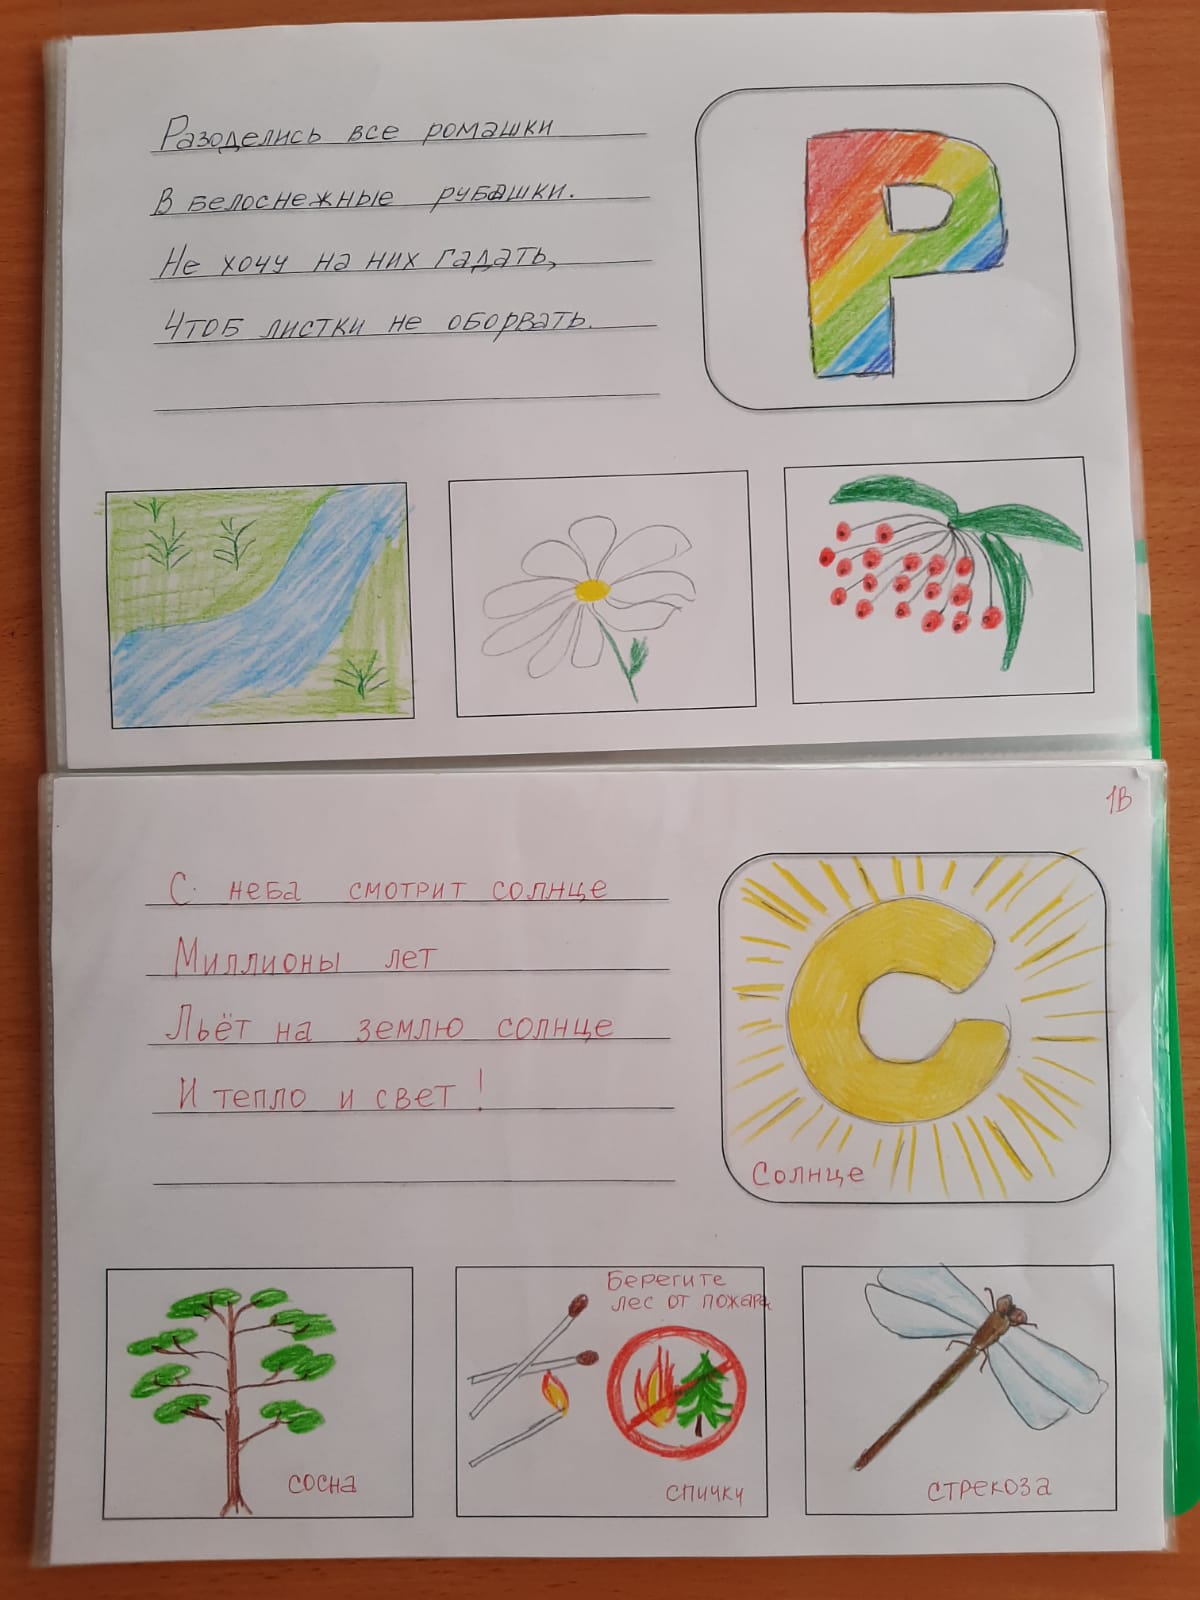 Разоделись все ромашки
В белоснежные рубашки.
Не хочу на них гадать,
Чтоб листки не оборвать.
Р
1В
С неба смотрит солнце
Миллионы лет
Льёт на землю солнце
И тепло и свет!
С
Солнце
сосна
Берегите
лес от пожара
спички
стрекоза